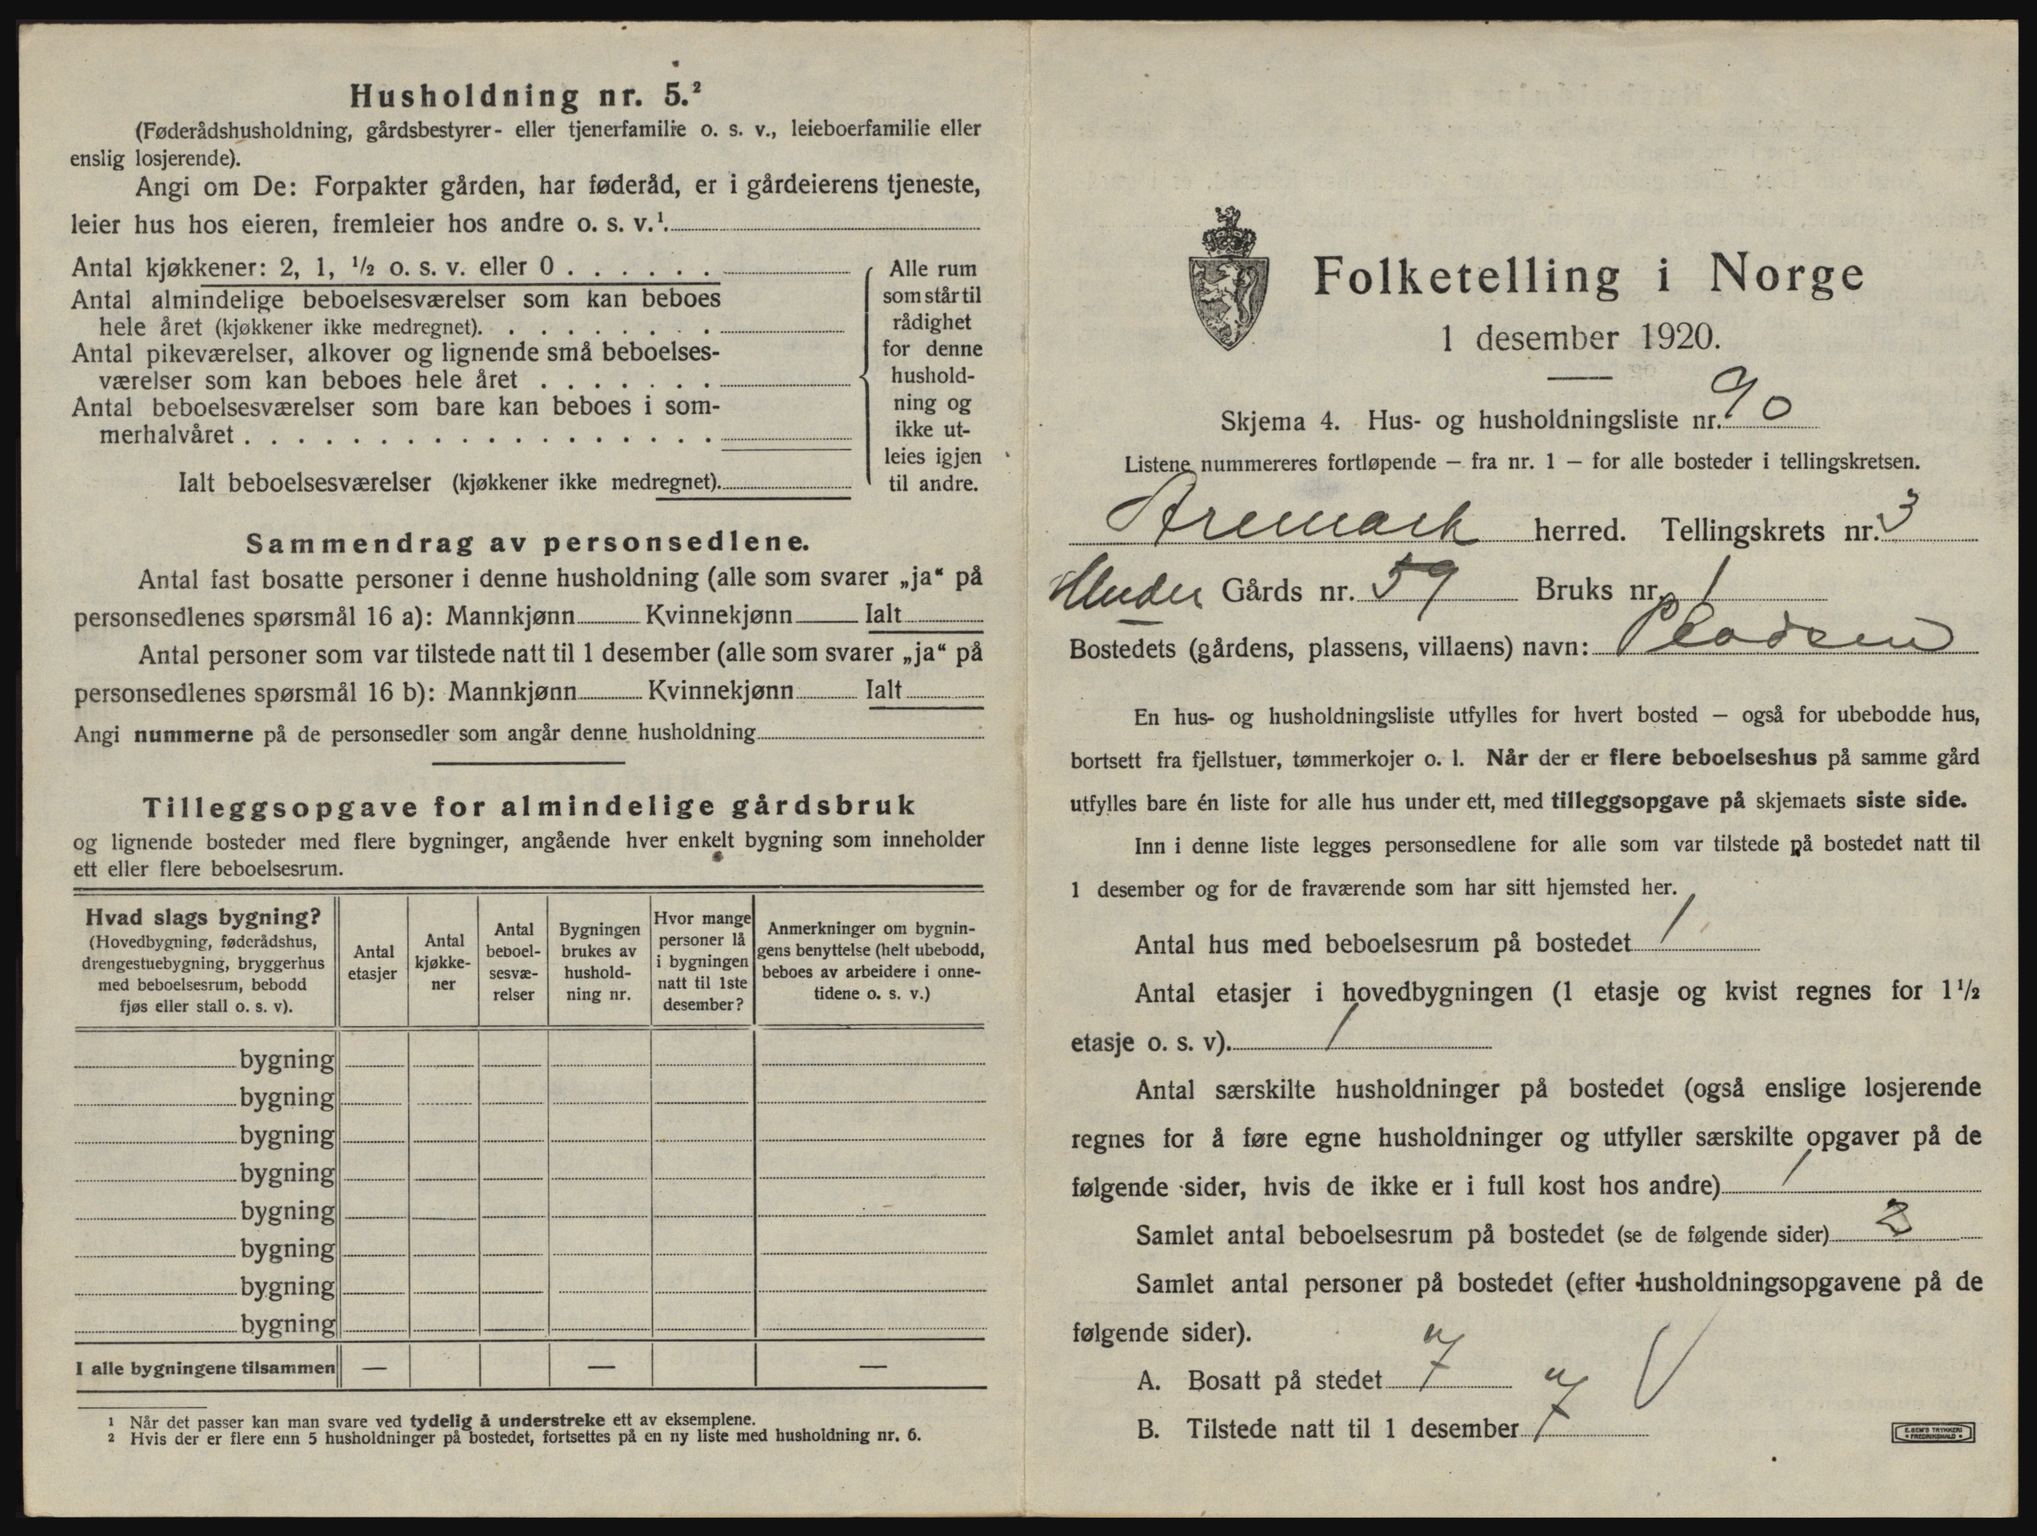 Husholdning nr. 5.²
(Føderådshusholdning, gårdsbestyrer- eller tjenerfamilie o. s. v., leieboerfamilie eller
enslig losjerende).
Angi om De: Forpakter gården, har føderåd, er i gårdeierens tjeneste,
leier hus hos eieren, fremleier hos andre o. s. v.¹.
Antal kjøkkener: 2, 1, ½ o. s. v. eller 0 . . . . . .
Antal almindelige beboelsesværelser som kan beboes
hele året (kjøkkener ikke medregnet). . . . . . . . .
Antal pikeværelser, alkover og lignende små beboelses-
værelser som kan beboes hele året . . . . . . .
Antal beboelsesværelser som bare kan beboes i som-
merhalvåret . . . . . . . . . . . . . . . . . .
Ialt beboelsesværelser (kjøkkener ikke medregnet).
Alle rum
som står til
rådighet
for denne
hushold-
ning og
ikke ut-
leies igjen
til andre.
Sammendrag av personsedlene.
Antal fast bosatte personer i denne husholdning (alle som svarer „ja“ på
personsedlenes spørsmål 16 a): Mannkjønn Kvinnekjønn Ialt
Antal personer som var tilstede natt til 1 desember (alle som svarer „ja“ på
personsedlenes spørsmål 16 b): Mannkjønn Kvinnekjønn Ialt
Angi nummerne på de personsedler som angår denne husholdning
Tilleggsopgave for almindelige gårdsbruk
og lignende bosteder med flere bygninger, angående hver enkelt bygning som inneholder
ett eller flere beboelsesrum.
Hvad slags bygning?
(Hovedbygning, føderådshus,
drengestuebygning, bryggerhus
med beboelsesrum, bebodd
fjøs eller stall o. s. v).
Antal
etasjer
Antal
kjøkke-
ner
Antal
beboel-
sesvæ-
relser
Bygningen
brukes av
hushold-
ning nr.
Hvor mange
personer lå
i bygningen
natt til 1ste
desember?
Anmerkninger om bygnin-
gens benyttelse (helt ubebodd,
beboes av arbeidere i onne-
tidene o. s. v.)
bygning
bygning
bygning
bygning
bygning
bygning
bygning
bygning
I alle bygningene tilsammen — — —
¹ Når det passer kan man svare ved tydelig å understreke ett av eksemplene.
² Hvis der er flere enn 5 husholdninger på bostedet, fortsettes på en ny liste med husholdning nr. 6.
Folketelling i Norge
1 desember 1920.
Skjema 4. Hus- og husholdningsliste nr. 90
Listene nummereres fortløpende — fra nr. 1 — for alle bosteder i tellingskretsen.
Aremark herred. Tellingskrets nr. 3
Under Gårds nr. 59 Bruks nr. 1
Bostedets (gårdens, plassens, villaens) navn: Pladsen
En hus- og husholdningsliste utfylles for hvert bosted — også for ubebodde hus,
bortsett fra fjellstuer, tømmerkojer o. l. Når der er flere beboelseshus på samme gård
utfylles bare én liste for alle hus under ett, med tilleggsopgave på skjemaets siste side.
Inn i denne liste legges personsedlene for alle som var tilstede på bostedet natt til
1 desember og for de fraværende som har sitt hjemsted her.
Antal hus med beboelsesrum på bostedet 1
Antal etasjer i hovedbygningen (1 etasje og kvist regnes for 1½
etasje o. s. v). 1
Antal særskilte husholdninger på bostedet (også enslige losjerende
regnes for å føre egne husholdninger og utfyller særskilte opgaver på de
følgende sider, hvis de ikke er i full kost hos andre) 1
Samlet antal beboelsesrum på bostedet (se de følgende sider)
Samlet antal personer på bostedet (efter husholdningsopgavene på de
følgende sider).
A. Bosatt på stedet 7
B. Tilstede natt til 1 desember 7
E. SEM'S TRYKKERI
• FREDRIKSHALD •